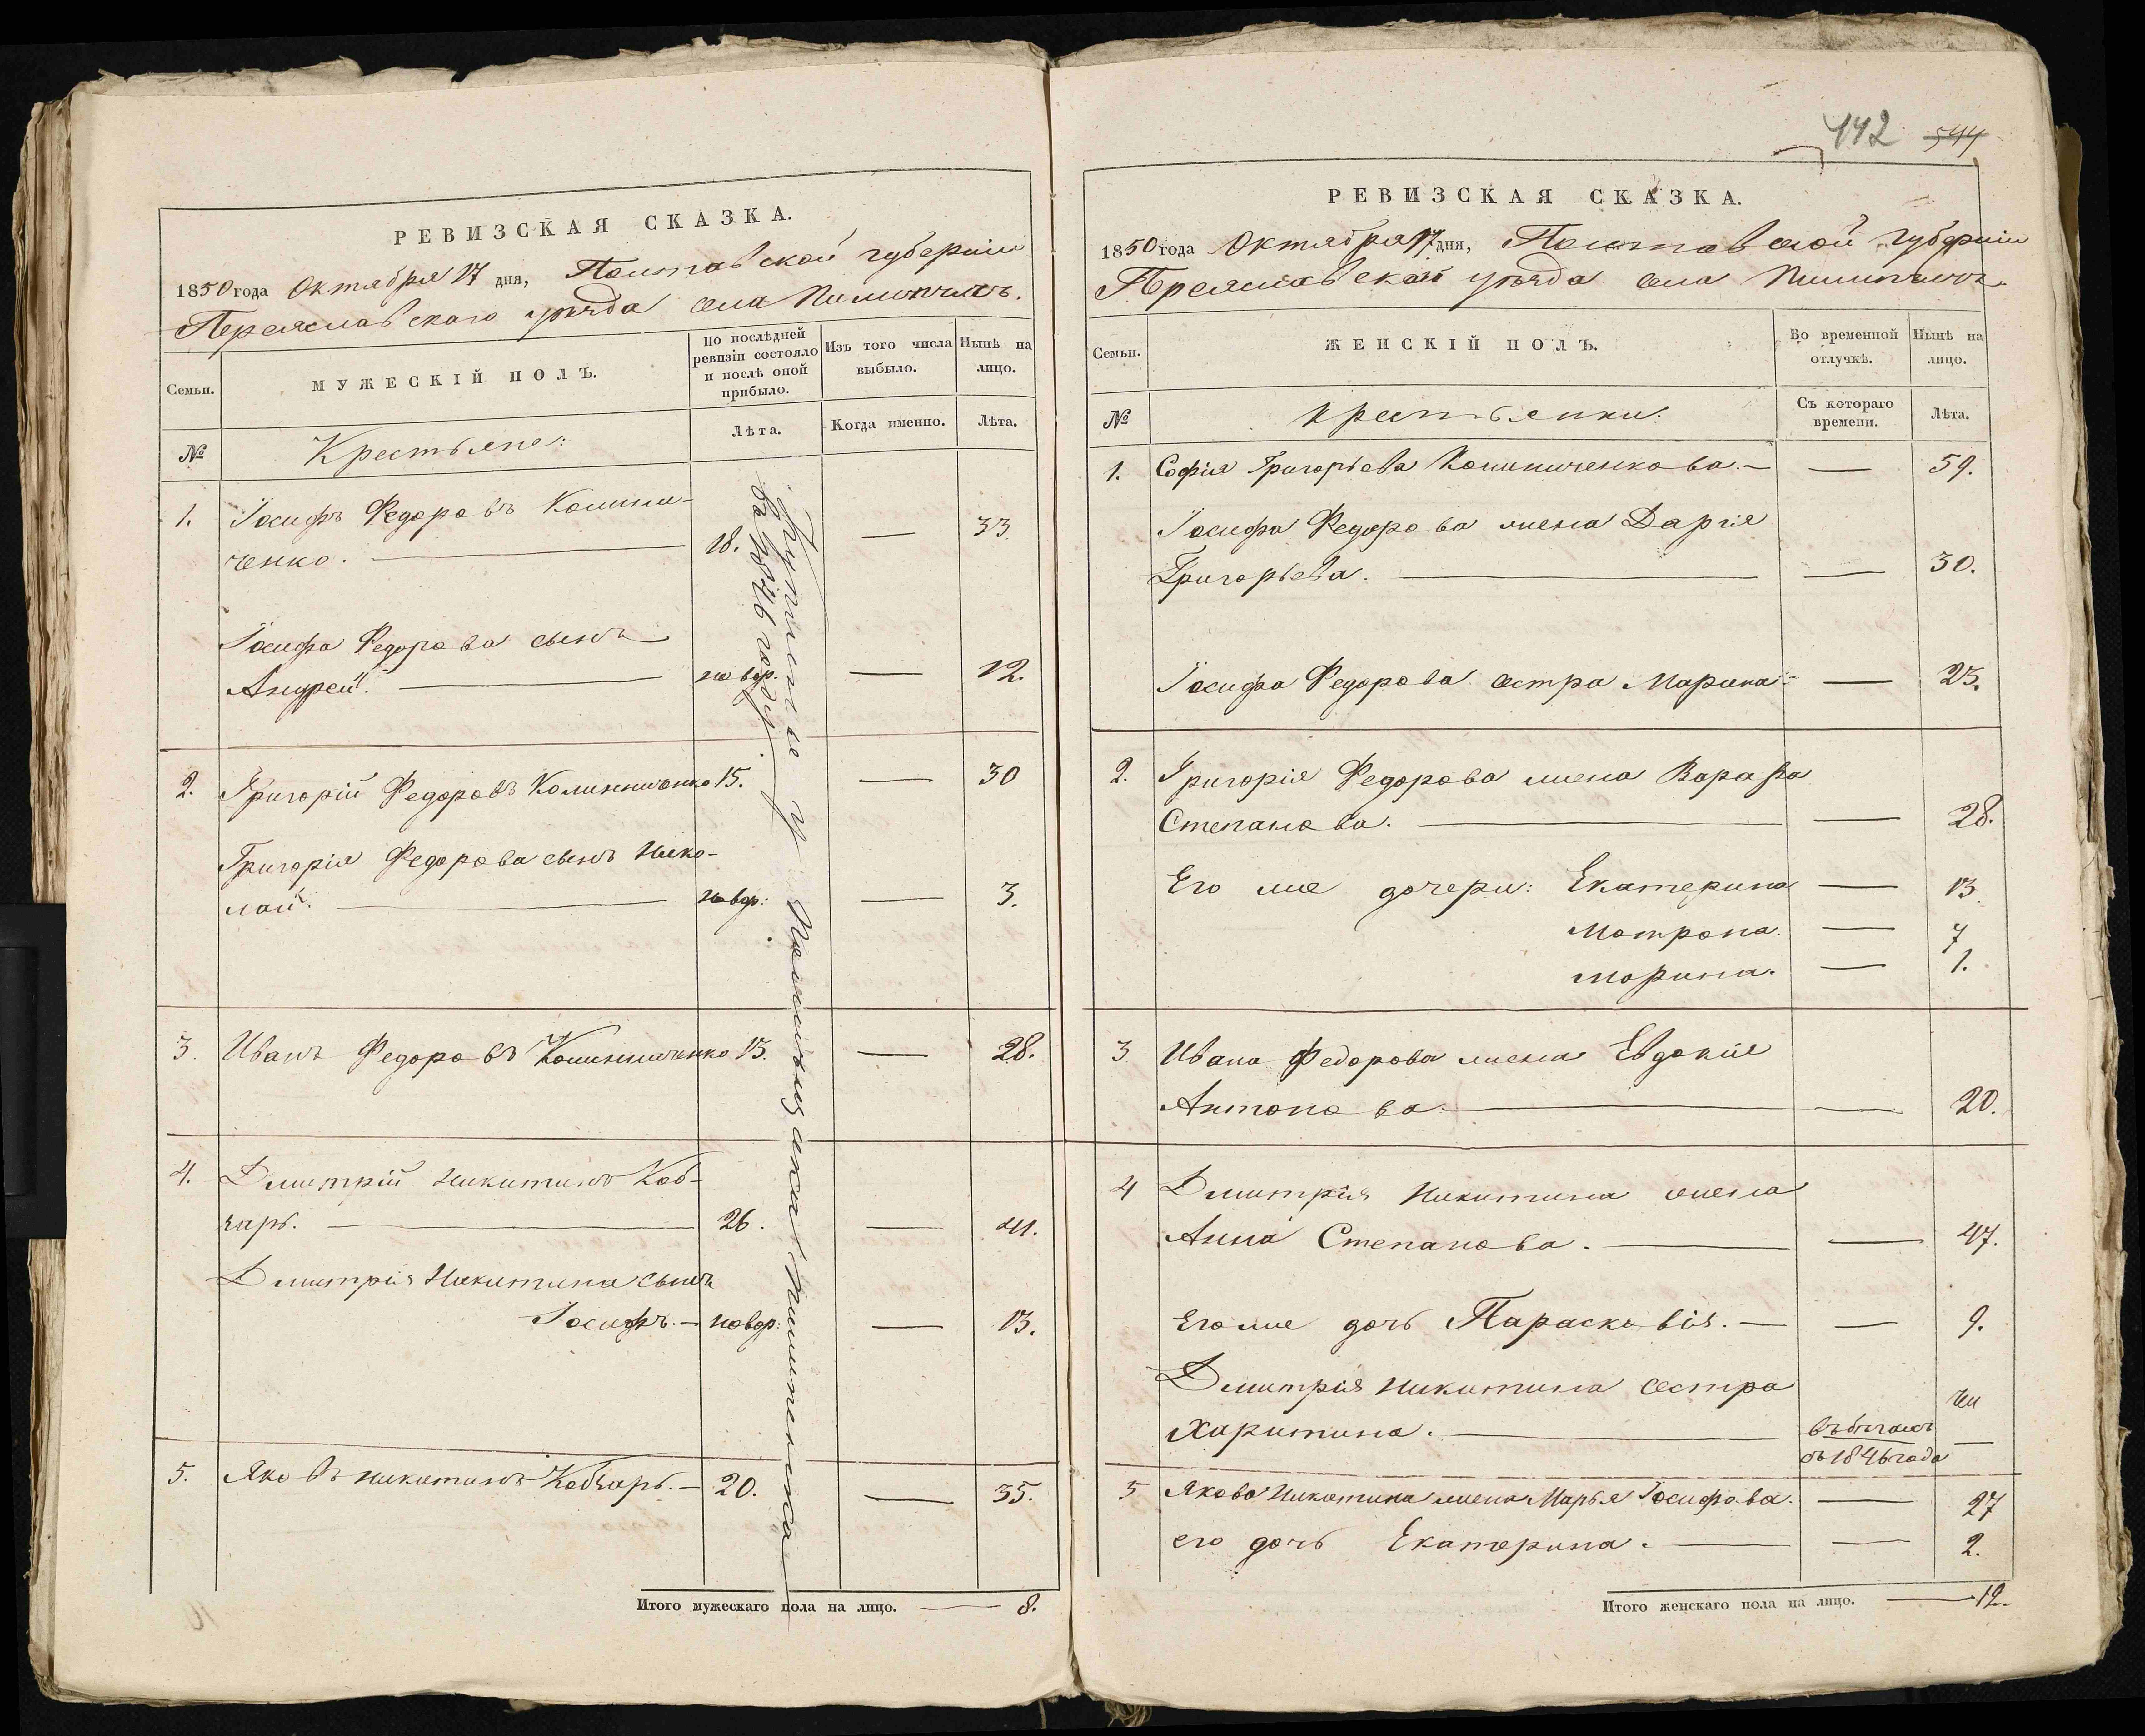 РЕВИЗСКАЯ СКАЗКА.
1850 года Октября 17 дня, Полтавской губерніи
Переяславскаго уѣзда села Пилипчатъ.
Семьи.
МУЖЕСКІЙ ПОЛЪ.
По послѣдней ревизіи состояло и послѣ оной прибыло.
Изъ того числа выбыло.
Нынѣ на лицо.
№
Крестьяне:
Лѣта.
Когда именно.
Лѣта.
Купленные у Помѣщика
въ 1846 году.
1. Іосифъ Федоровъ Калини-
ченко. — 18. — 33
Іосифа Федорова сынъ
Андрей. — новор. — 12.
2. Григорій Федоровъ Калиниченко 15. — 30
Григорія Федорова сынъ Нико-
лай. — новор: — 3.
3. Иванъ Федоровъ Калиниченко 13. — 28.
4. Дмитрій Никитинъ Коб-
зарь. — 26. — 41.
Дмитрія Никитина сынъ
Іосифъ. — новор: — 13.
5. Яковъ Никитинъ Кобзарь. — 20. — 35.
Итого мужескаго пола на лицо. — 8.
142 544
РЕВИЗСКАЯ СКАЗКА.
1850 года Октября 17 дня, Полтавской губерніи
Переяславскаго уѣзда села Пилипчатъ.
Семьи.
ЖЕНСКІЙ ПОЛЪ.
Во временной отлучкѣ.
Нынѣ на лицо.
№
Крестьянки:
Съ котораго времени.
Лѣта.
1. Софія Григорьева Калиниченкова. — — 59.
Іосифа Федорова жена Дарія
Григорьева. — — 30.
Іосифа Федорова сестра Марина — — 23.
2. Григорія Федорова жена Варвара
Степанова. — — 28.
Его же дочери: Екатерина — 13
Матрона. — 7
Марина. — 1.
3. Ивана Федорова жена Евдокія
Антонова. — — 20.
4 Дмитрія Никитина жена
Анна Степанова. — — 47.
Его же дочь Параскевія. — — 9.
Дмитрія Никитина сестра
Харитина. — въ бѣгахъ
съ 1846 года —
5 Якова Никитина жена Марья Іосифова. — 27
его дочь Екатерина. — — 2.
Итого женскаго пола на лицо. — 12.